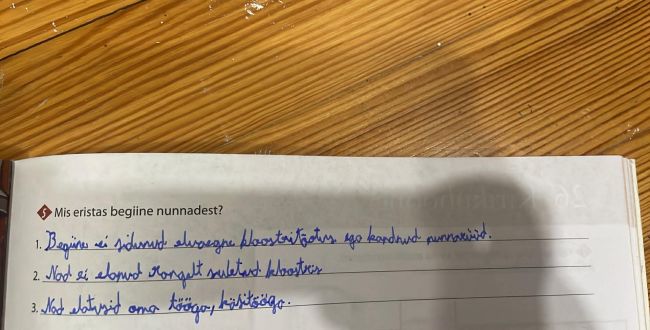 5 Mis eristas begiine nunnadest?
1. Begiine ei sidunud eluaegne kloostritõotus ega kandnud nunnarüüd.
2. Nad ei elanud rangelt suletud kloostris
3. Nad elatusid oma tööga, käsitööga.